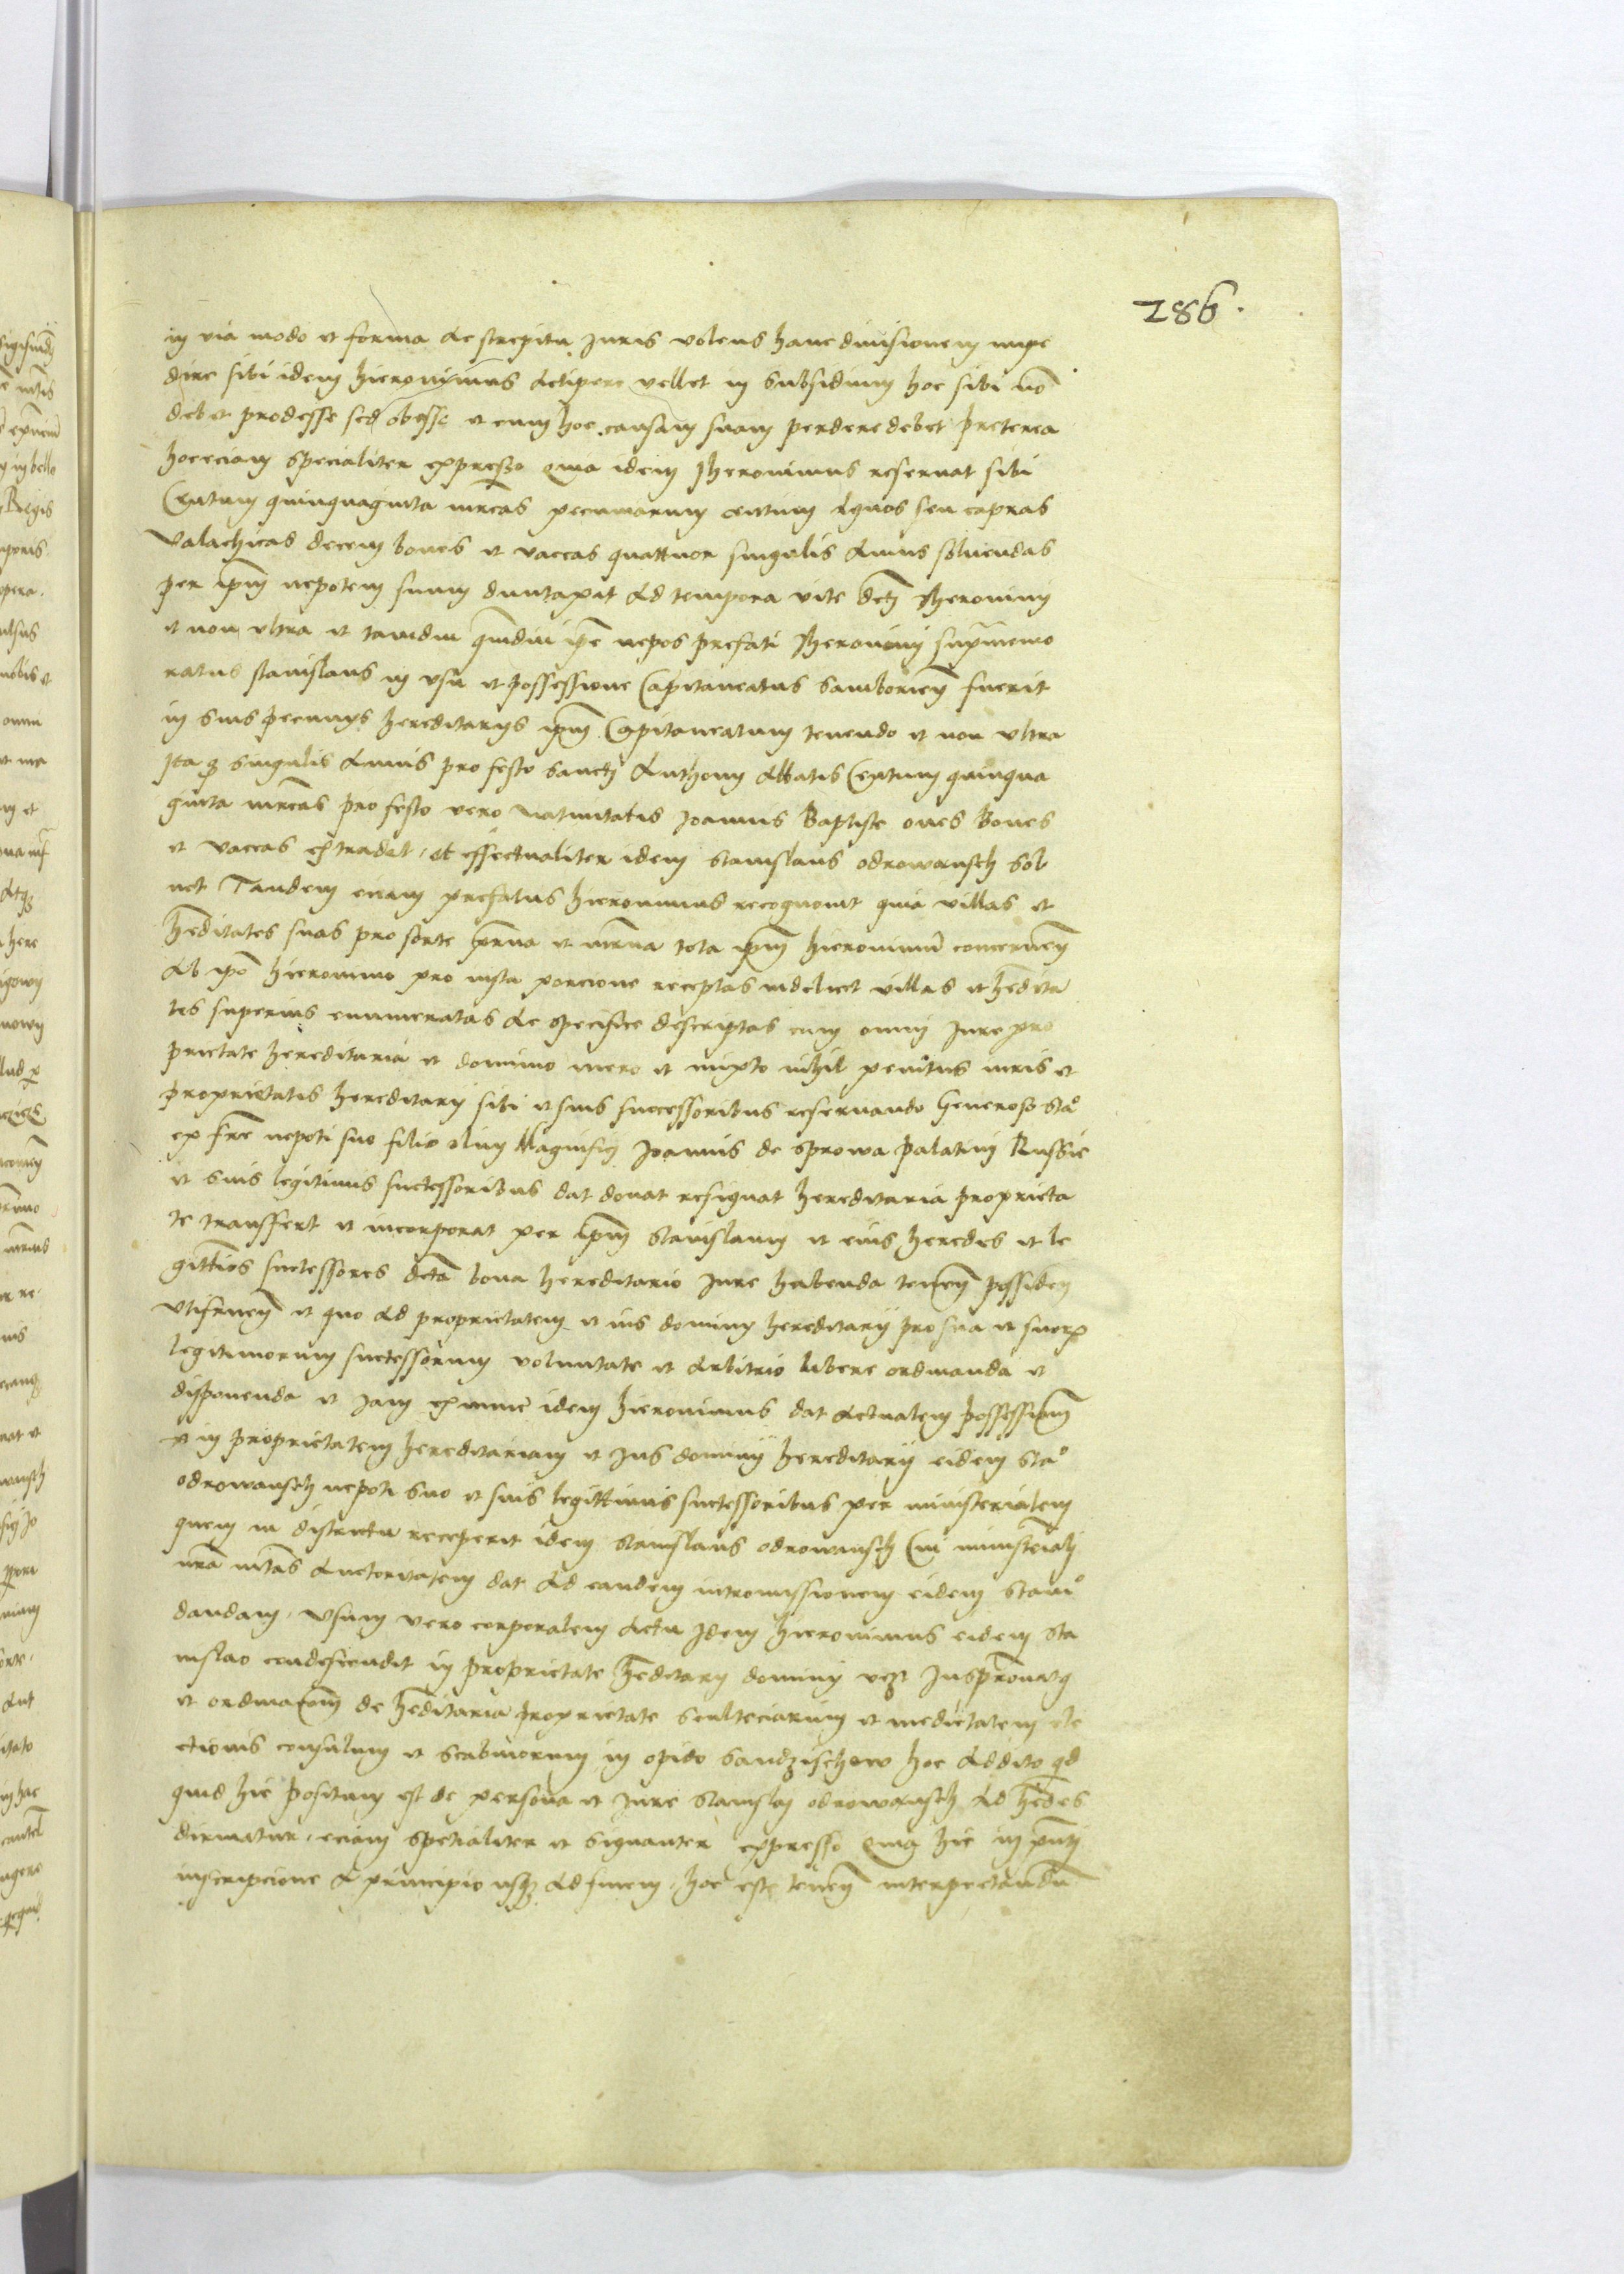 286.
in via modo et forma ac strepitu Juris volens hanc divisionem impe
dire sibi idem hieronimus Accipere vellet in subsidium hoc sibi nō
debet prodesse sed obesse et cum hoc causam suam perdere debet preterea
hoc eciam specialiter expresso quia idem Iheronimus reservat sibi
Centum quinquaginta mrcas pecuniarum centum Agnos seu capras
valachicas decem boves et vaccas quattuor singulis Annis solvendas
per ipm nepotem suum duntaxat Ad tempora vite dcti Iheronimi
et non ultra et tamdiu qmdiu ipe nepos prefati Iheronimi supmemo
ratus stanislaus in usu et possessione Capitaneatus samborien fuerit
in suis pecunys hereditarys ipm Capitaneatum tenendo et non ultra
Ita q singulis Annis pro festo sancti Anthony Abbatis Centum quinqua
ginta mrcas pro festo vero nativitatis Joannis Baptiste oves Boves
et vaccas extradet et effectualiter idem stanislaus odrowansch sol
vet Tandem eciam prefatus hieronimus recognovit quia villas et
hditates suas pro sorte prna et mrna tota ipm hieronimu concernen
Ab ipo hieronimo pro iusta porcione receptas videlicet villas et hedita
tes superius enumeratas Ac specifice descriptas cum omni Jure pro
prietate hereditaria et dominio mero et mixto nihil penitus iuris et
proprietatis hereditarij sibi et suis successoribus reservando Generoso Stao
ex fre nepoti suo filio olim Magnifici Joannis de sprowa palatini Russie
et suis legitimis successoribus dat donat resignat hereditaria proprieta
te transfert et incorporat per ipm Stanislaum et eius heredes et le
gittios successores dcta bona hereditario Jure habenda tenen possiden
utifruen et quo Ad proprietatem et ius dominij hereditarij pro sua et suorum
legitimorum successorum voluntate et Arbitrio libere ordinanda et
disponenda et Jam ex nunc idem hieronimus dat Actualem possessionem
et in proprietatem hereditariam et Jus dominij hereditarij eidem Stao
odrowansch nepoti suo et suis legittimis successoribus per ministerialem
quem in districtu receperit idem stanislaus odrowansch Cui ministeriali
nra mtas Auctoritatem dat Ad eandem intromissionem eidem Stanio
dandam usum vero corporalem Actu Idem hieronimus eidem Sta
nislao condescendit in proprietate heditarij dominij
et ordinacom de heditaria proprietate scultetiarum et medietatem ele
ctionis consulum et scabinorum in opido sandzischow hoc Addito qd
quid hic positum est de persona et Jure stanislai odrowansch Ad hedes
dirivatur eciam specialiter et signanter expresso quia hic in pnti
inscripcione A principio usq Ad finem hoc est tenen interpretandu